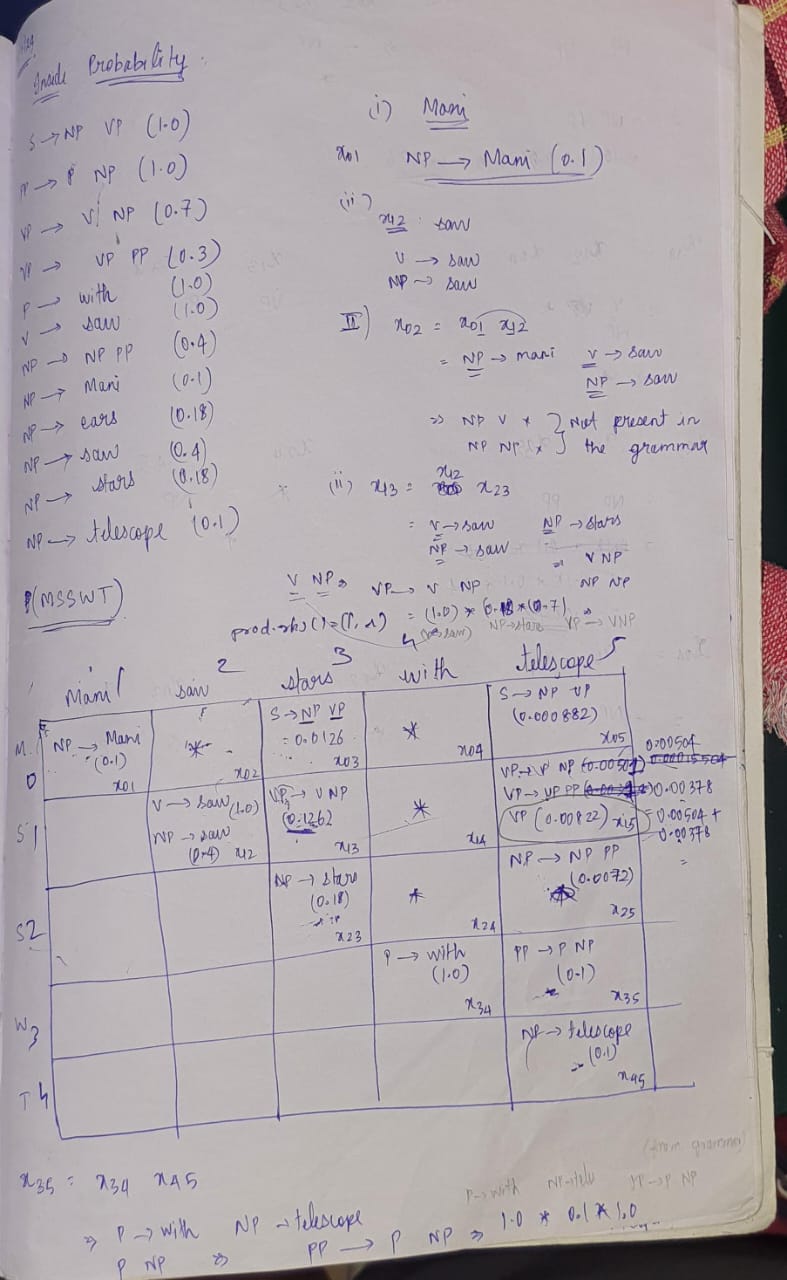 Inside Probability.
S → NP VP (1.0)
PP → P NP (1.0)
VP → V NP (0.7)
VP → VP PP (0.3)
P → with (1.0)
V → saw (1.0)
NP → NP PP (0.4)
NP → Mani (0.1)
NP → ears (0.18)
NP → saw (0.4)
NP → stars (0.18)
NP → telescope (0.1)
P(MSSWT)
(i) Mani
x01 NP → Mani (0.1)
(ii) x12 saw
V → saw
NP → saw
II) x02 = x01 x12
= NP → mani V → saw
NP → saw
⇒ NP V × } Not present in
NP NP × } the grammar
(ii) x13 = x12 x23
= V → saw NP → stars
NP → saw ⇒ V NP
NP NP
V NP ⇒ VP → V NP
= (1.0) * 0.18 * (0.7)
(V→saw) NP→stars VP → VNP
Mani 1 saw 2 stars 3 with telescope 5
M 0 NP → Mani (0.1) x01
* x02
S → NP VP = 0.0126 x03
* x04
S → NP VP (0.000882) x05
S1 V → saw (1.0)
NP → saw (0.4) x12
VP → V NP (0.1262) x13
* x14
VP → V NP (0.00504) 0.00504
VP → VP PP 0.00378
VP (0.00822) x15 = 0.00504 + 0.00378
=
S2 NP → stars (0.18) x23
* x24
NP → NP PP (0.0072) x25
W3 P → with (1.0) x34
PP → P NP (0.1) x35
T4 NP → telescope (0.1) x45
(from grammar)
x35 = x34 x45
P→with NP→tele PP→P NP
⇒ P → with NP → telescope
P NP ⇒ PP → P NP ⇒ 1.0 * 0.1 * 1.0